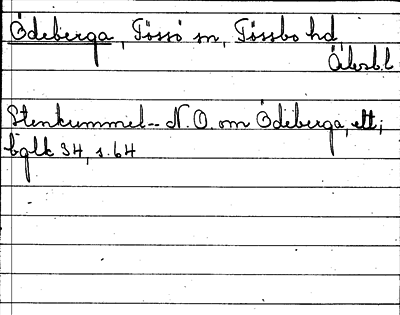 Ödeberga, Tössö sn, Tössbo hd
Älvsb.l
Stenkummel -- N.O. om Ödeberga, ett;
bglk 34, s. 64